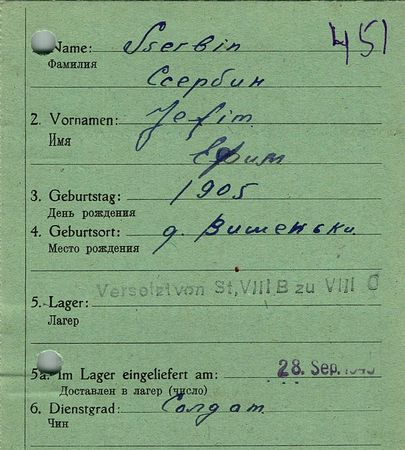 Name: Sserbin 451
Фамилия
Ссербин
2. Vornamen: Jefim
Имя
Ефим
3. Geburtstag: 1905
День рождения
4. Geburtsort: д. Вишеньки
Место рождения
Versetzt von St, VIII B zu VIII C
5. Lager:
Лагер
5a. Im Lager eingeliefert am: 28. Sep.
Доставлен в лагер (число)
6. Dienstgrad: Солдат
Чин